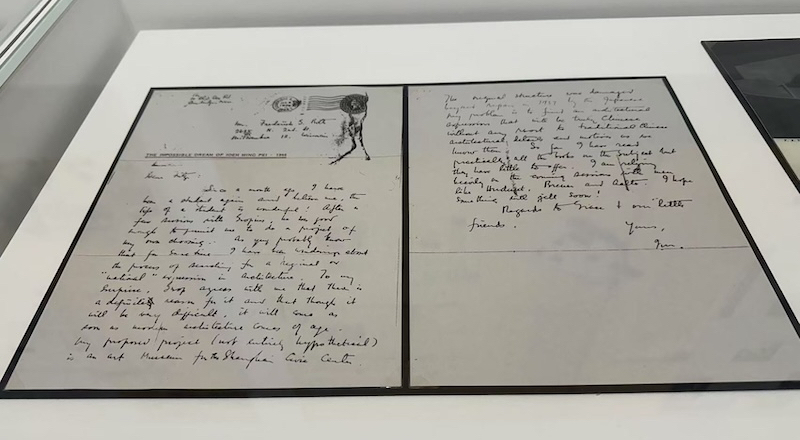 Mr. Frederick G. Roth
Milwaukee 12. Wisconsin
THE IMPOSSIBLE DREAM OF IEOH MING PEI - 1946
Dear Fritz,
Since a month ago I have
been a student again and believe me, the
life of a student is wonderful. After a
few sessions with Gropius, he was good
enough to permit me to do a project of
my own choosing. As you probably know
that for some time I have been wondering about
the process of searching for a regional or
"national" expression in architecture. To my
surprise, Grop agrees with me that there is
a definite reason for it and that though it
will be very difficult, it will come as
soon as modern architecture comes of age.
My proposed project (not entirely hypothetical)
is an Art Museum for the Shanghai Civic Center.
The original structure was damaged
beyond repair in 1937 by the Japanese
My problem is to find an architectural
expression that will be truly Chinese
without any resort to traditional Chinese
architectural details and motives as we
know them. So far I have read
practically all the books on the subject but
they have little to offer. I am relying
heavily on the coming sessions with men
like Hudnut, Breuer and Aalto. I hope
something will gell soon!
Regards to Grace & our little
friends.
Yours,